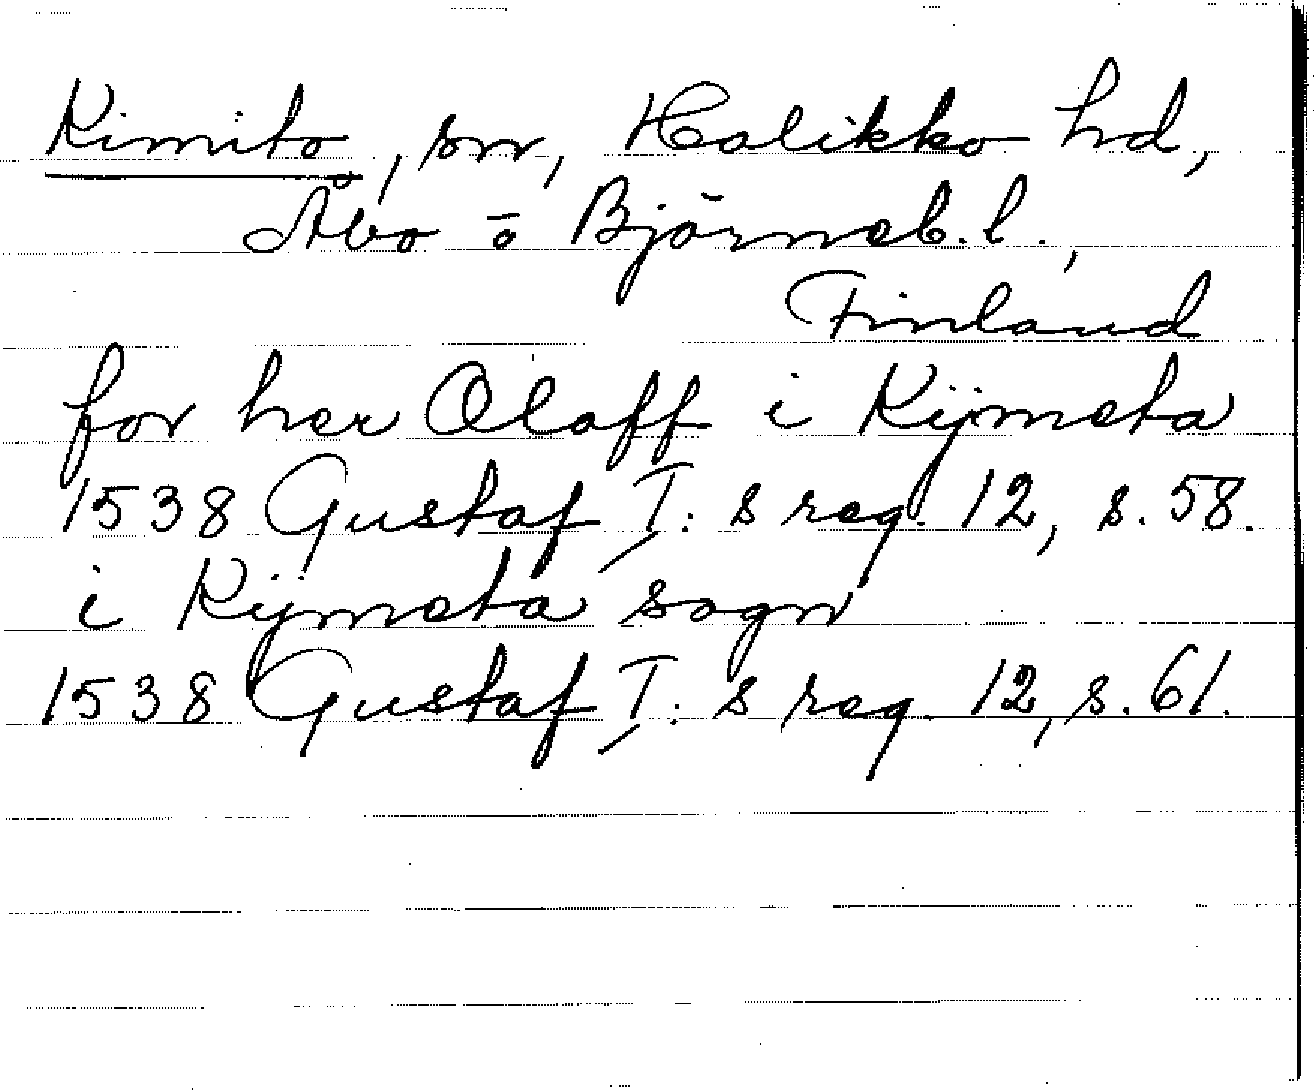 Kimito, sn, Halikko hd,
Åbo o Björneb. l.,
Finland
for her Olaff i Kijmeta
1538 Gustaf I:s reg. 12, s. 58.
i Kijmeta sogn
1538 Gustaf I:s reg. 12, s. 61.